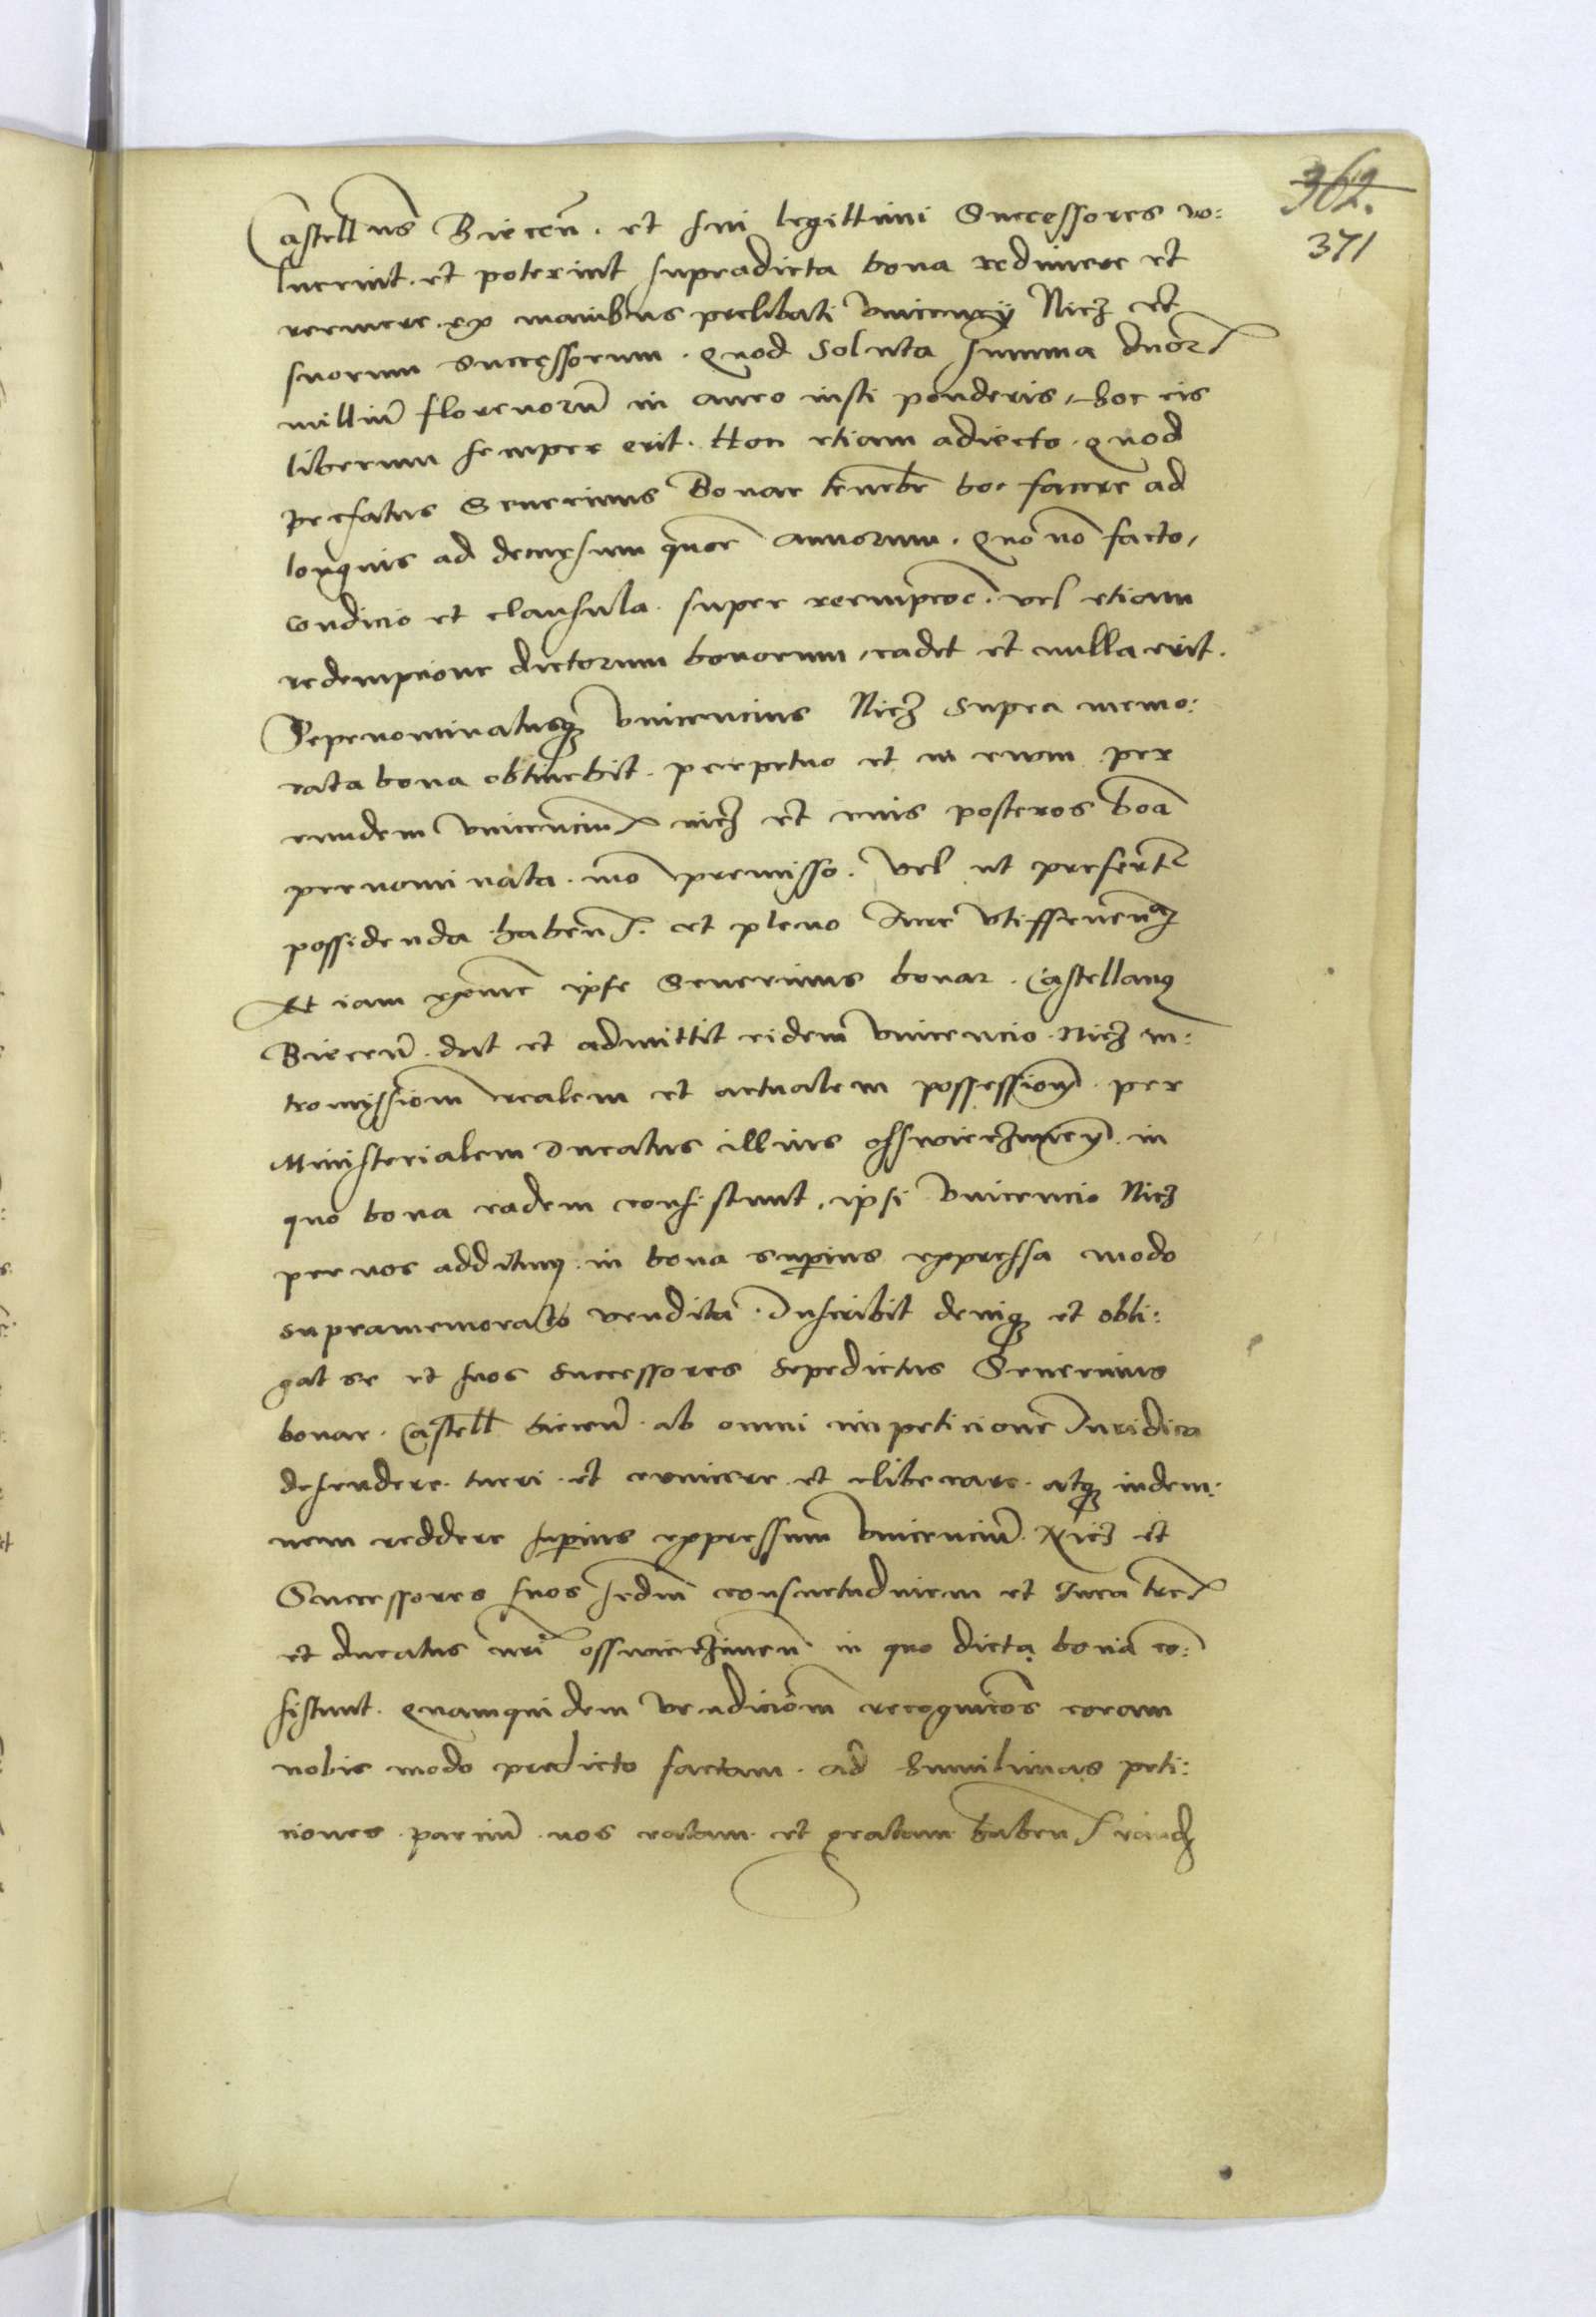 362.
371
Castellns Biecen̄. et sui legittimi Successores vo:
luerint. et poterint supradicta bona redimere et
reemere. ex manibus prelibati vincency Nicz et
suorum successorum. Quod soluta summa duor
milliū florenorū in auro iusti ponderis, hoc eis
liberum semper erit. Hoc etiam adiecto. quod
prefatus Severinus Bonar teneb̄r hoc facere ad
longius ad decursum annorum. Quo nō facto,
condicio et clausula. super reempcōe. vel etiam
redempcione dictorum bonorum, cadet et nulla erit.
Sepenominatusqz vincencius Nicz supra memo:
rata bona obtinebit. perpetuo et in evum per
eundem vincenciū nicz et eius posteros bōa
prenominata. mō premisso. vel ut prefertr
possidenda haben. et pleno Iure utifruen
Et iam ipse Severinus bonar. Castellanus
Biecen̄. dat et admittit eidem vincencio. Nicz in:
tromissionem realem et actualem possessionem. per
Ministerialem Ducatus illius osswieczimen. in
quo bona eadem consistunt, ipsi vincencio Nicz
per nos additum. in bona superius expressa modo
supramemorato vendita. Inscribit deniqz et obli:
gat se et suos successores sepedictus Severinus
bonar. Castell. biecen̄. ab omni impeticione Iuridica
defendere. tueri. et evincere et eliberare. atqz indem:
nem reddere superius expressum vincenciū. Nicz et
Successores suos scdm consuetudinem et Iura tre
et ducatus nri osswieczimen̄ in quo dicta bona cō:
sistunt. Quamquidem vendiciōm recognicōs coram
nobis modo predicto factam. ad humilimas peti:
ciones. parciū. nos ratam. et gratam haben eandz